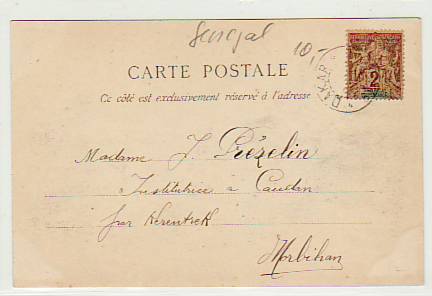 Senegal 10,-
CARTE POSTALE
Ce côté est exclusivement réservé à l'adresse
DAKAR
2
Madame J. Guézelin
Institutrice à Caudan
par Kerentrek
Morbihan